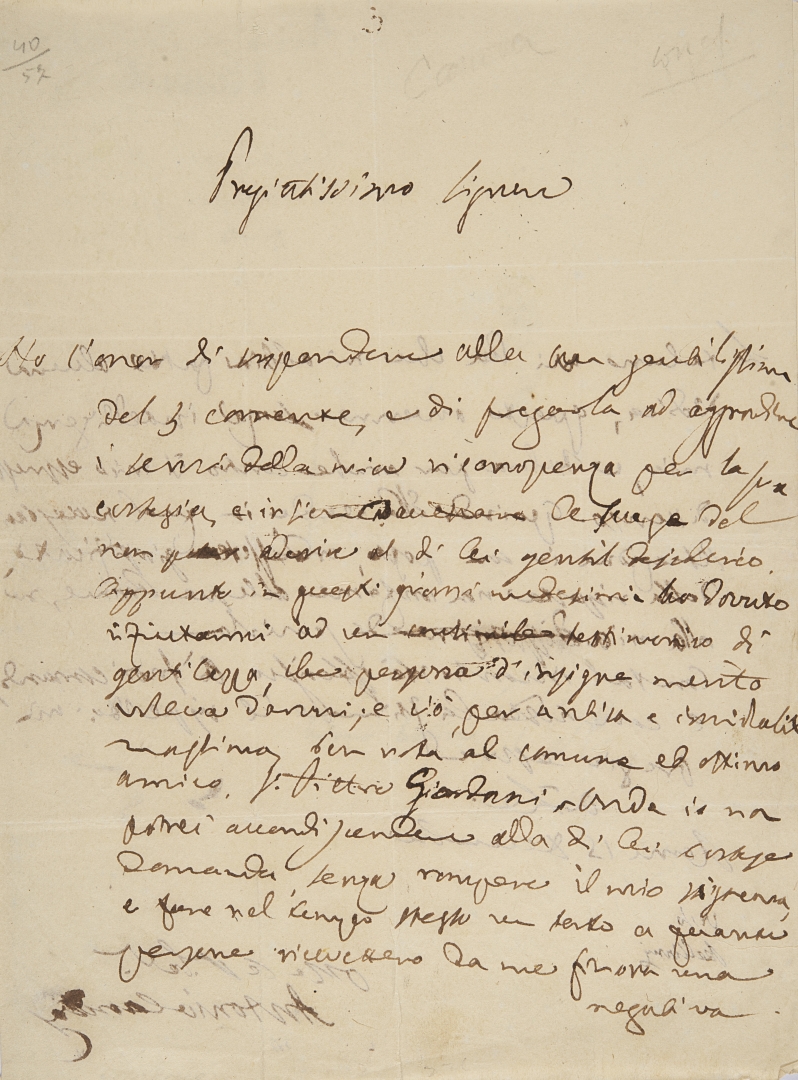 3
40
57
Pregiatissimo Signore
Ho l'onor di rispondere alla sua gentilissima
del 3 corrente, e di pregarla, ad aggradire
i sensi della mia riconoscenza per la sua
cortesia, e insieme le scuse del
non aderire al di lei gentil desiderio.
Appunto in questi giorni medesimi ho dovuto
rifiutarmi ad un testimonio di
gentilezza, che persona d'insigne merito
voleva darmi; e ciò, per antica e inviolabile
massima, ben nota al comune ed ottimo
amico, Sr. Pietro Giordani. Onde io non
potrei accondiscendere alla di lei cortese
domanda, senza rompere il mio sistema,
e fare nel tempo stesso un torto a quante
persone ricevettero da me finora una
negativa.
Antonio Canova